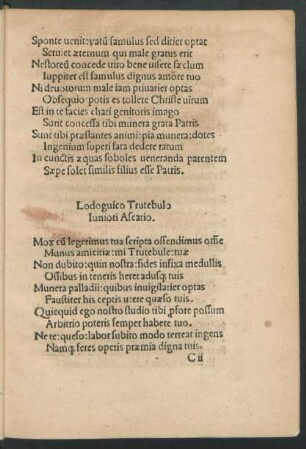 Sponte uenit: vatū famulus sed ditier optat
Seruiet æternum qui male gratus erit
Nestoreū concede uiro bene uisere sæclum
Iuppiter est famulus dignus amore tuo
Ni deuotorum male iam priuarier optas
Obsequio: potis es tollere Christe uirum
Est in te facies chari genitoris imago
Sunt concessa tibi munera grata Patris
Sunt tibi præstantes animi: pia munera: dotes
Ingenium superi fata dedere ratum
In cunctis æquas soboles ueneranda parentem
Sæpe solet similis filius esse Patris.
Lodoguico Trutebulo
Iuniori Ascatio.
Mox cū legerimus tua scripta ostendimus om̄e
Munus amicitiæ: mi Trutebule: tuæ
Non dubito: quin nostra: fides infixa medullis
Ossibus in teneris heret adusq; tuis
Munera palladii: quibus inuigilarier optas
Fausviter his ceptis utere quæso tuis.
Quicquid ego nostro studio tibi ꝓfore possum
Arbitrio poteris semper habere tuo.
Ne te: queso: labor subito modo terreat ingens
Namq; feres operis præmia digna tuis.
C ii